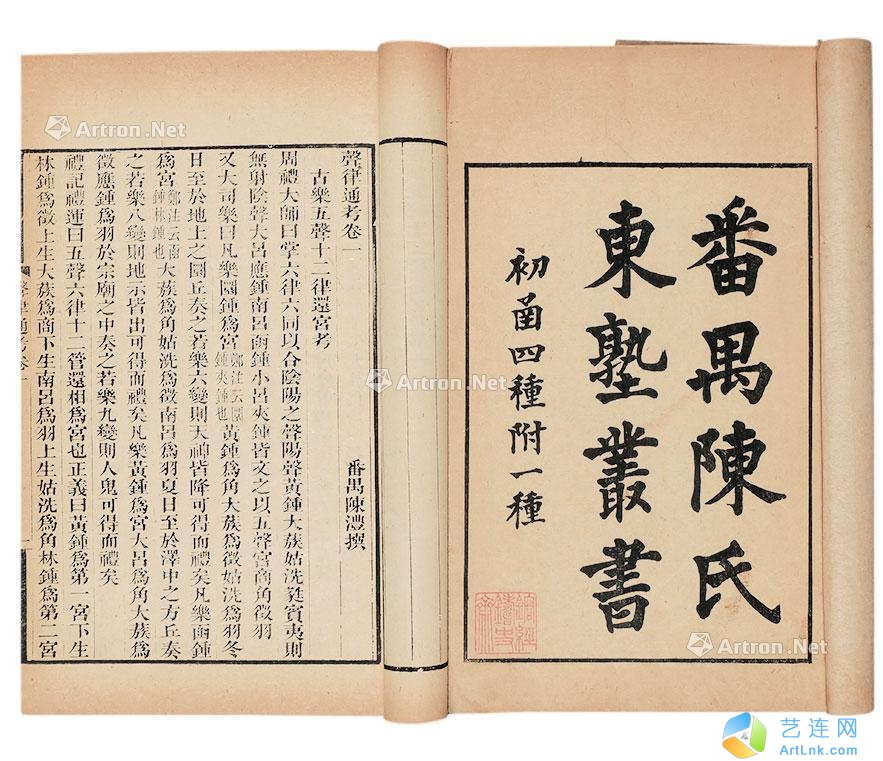 番禺陳氏
東塾叢書
初函四種附一種
聲律通考卷一
番禺陳澧撰
古樂五聲十二律還宮考
周禮大師曰掌六律六同以合陰陽之聲陽聲黃鍾大蔟姑洗蕤賓夷則
無射陰聲大呂應鍾南呂函鍾小呂夾鍾皆文之以五聲宮商角徵羽
又大司樂曰凡樂圜鍾爲宮鄭注云圜鍾夾鍾也黃鍾爲角大蔟爲徵姑洗爲羽冬
日至於地上之圜丘奏之若樂六變則天神皆降可得而禮矣凡樂函鍾
爲宮鄭注云函鍾林鍾也大蔟爲角姑洗爲徵南呂爲羽夏日至於澤中之方丘奏
之若樂八變則地示皆出可得而禮矣凡樂黃鍾爲宮大呂爲角大蔟爲
徵應鍾爲羽於宗廟之中奏之若樂九變則人鬼可得而禮矣
禮記禮運曰五聲六律十二管還相爲宮也正義曰黃鍾爲第一宮下生
林鍾爲徵上生大蔟爲商下生南呂爲羽上生姑洗爲角林鍾爲第二宮
聲律通考卷一
一
Artron.Net
Artron.Net
Artron.Net
Artron.Net
艺连网
ArtLnk.com